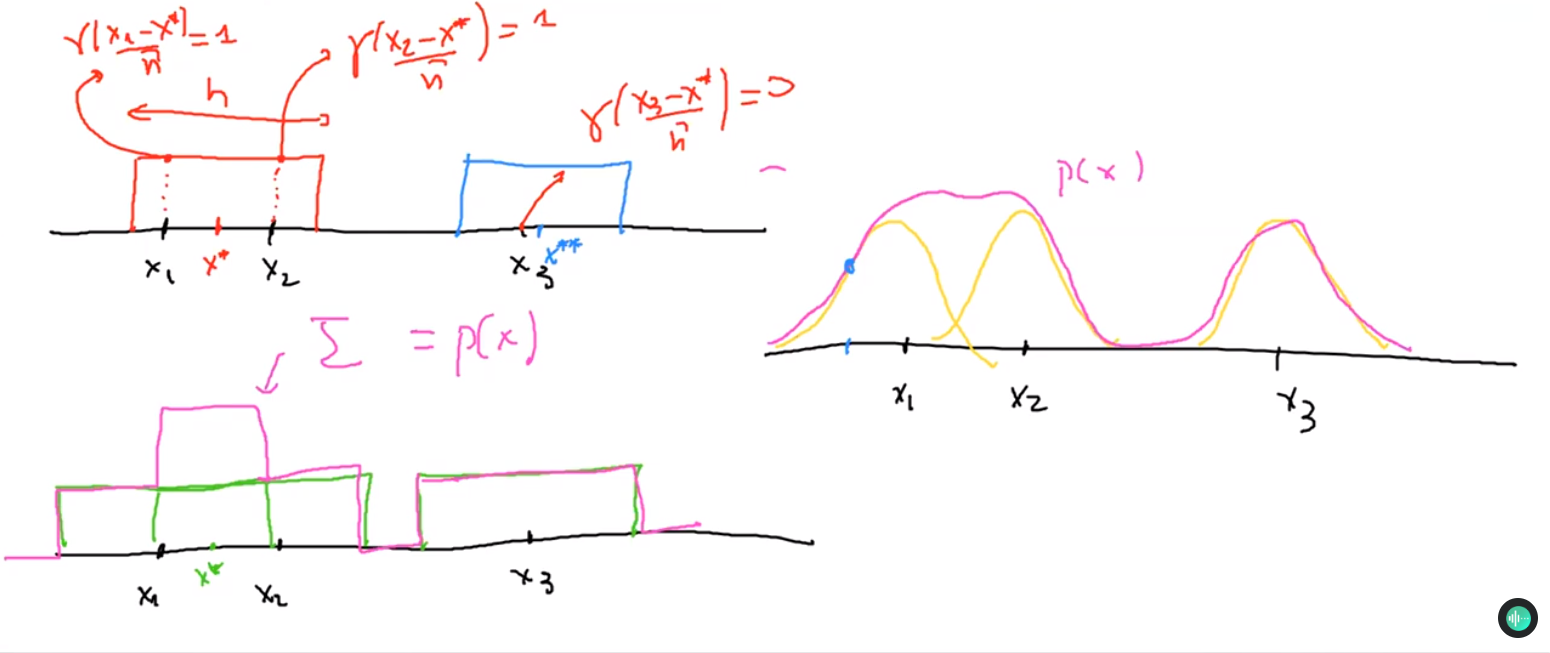 γ(x₁-x*)/h = 1
γ(x₂-x*)/h) = 1
h
γ(x₃-x*)/h) = 0
x₁ x* x₂ x₃ x**
p(x)
Σ = p(x)
x₁ x₂ x₃
x₁ x* x₂ x₃